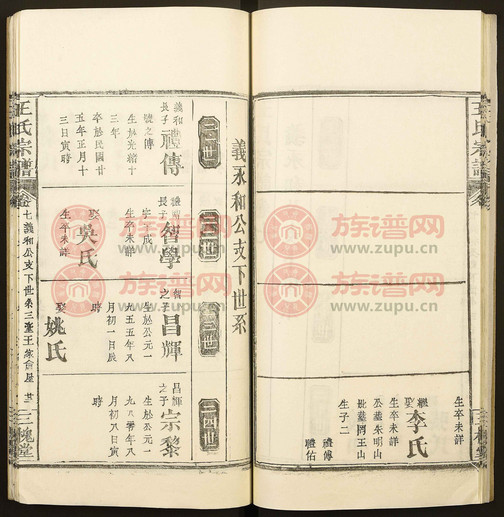 王氏宗譜
繼
娶李氏
生卒未詳
生卒未詳
公葬朱明山
妣葬岡王山
生子二
禮傳
禮佑
義永和公支下世系
二一世
義和
長子
禮傳
號之傳
生於光緒十
三年
卒於民國廿
五年正月十
三日寅時
二二世
禮傳
長子
智學
字成
生卒未詳
娶吳氏
生卒未詳
二三世
智學
之子
昌輝
生於公元一
九五五年八
月初一日辰
時
娶姚氏
二四世
昌輝
之子
宗黎
生於公元一
九八零年八
月初八日寅
時
王氏宗譜
卷七
義和公支下世系三
三槐堂
族谱网
www.zupu.cn
族谱网
www.zupu.cn
族谱网
www.zupu.cn
族谱网
www.zupu.cn